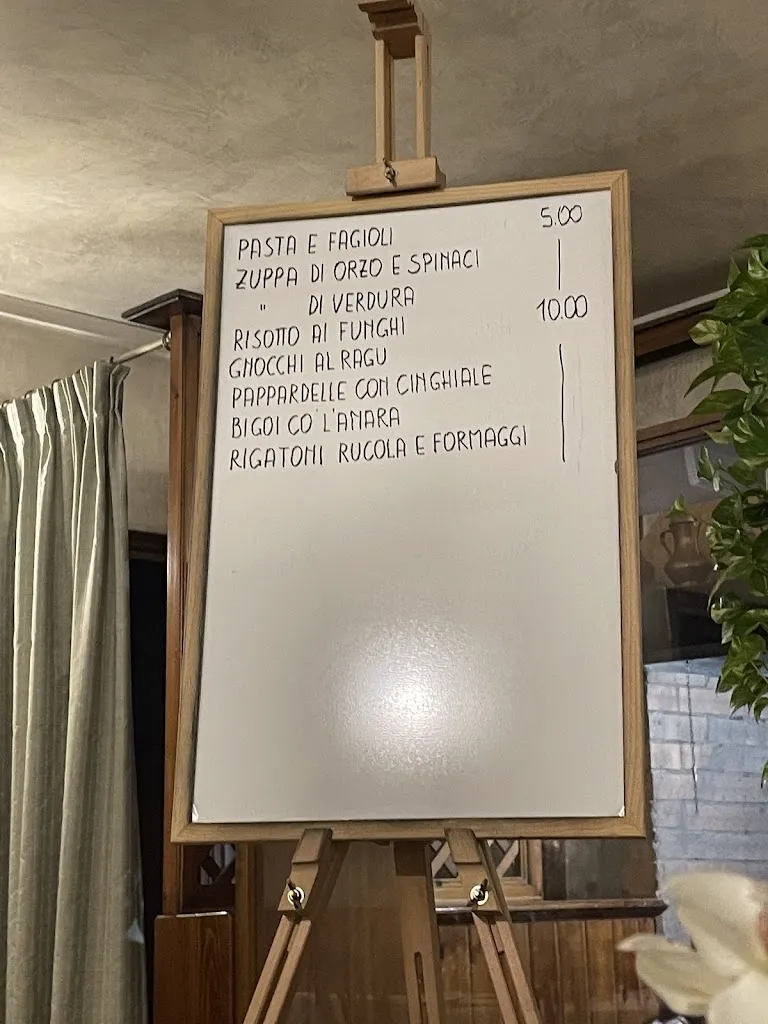 PASTA E FAGIOLI 5.00
ZUPPA DI ORZO E SPINACI |
" DI VERDURA
RISOTTO AI FUNGHI 10.00
GNOCCHI AL RAGU |
PAPPARDELLE CON CINGHIALE
BIGOI CO' L'ANARA
RIGATONI RUCOLA E FORMAGGI